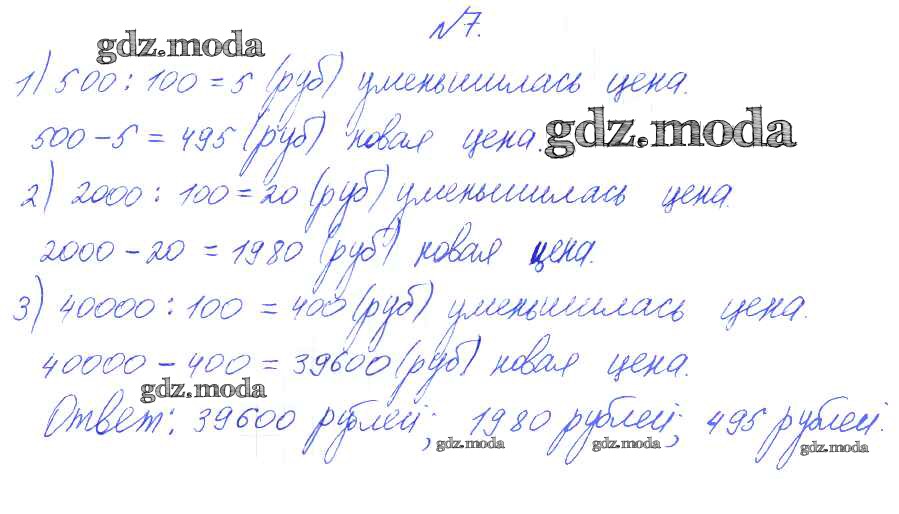 №7.
gdz.moda
1) 500 : 100 = 5 (руб) уменьшилась цена.
500 - 5 = 495 (руб) новая цена.
gdz.moda
2) 2000 : 100 = 20 (руб) уменьшилась цена.
2000 - 20 = 1980 (руб) новая цена.
3) 40000 : 100 = 400 (руб) уменьшилась цена.
40000 - 400 = 39600 (руб) новая цена.
gdz.moda
Ответ: 39600 рублей; 1980 рублей; 495 рублей.
gdz.moda gdz.moda gdz.moda